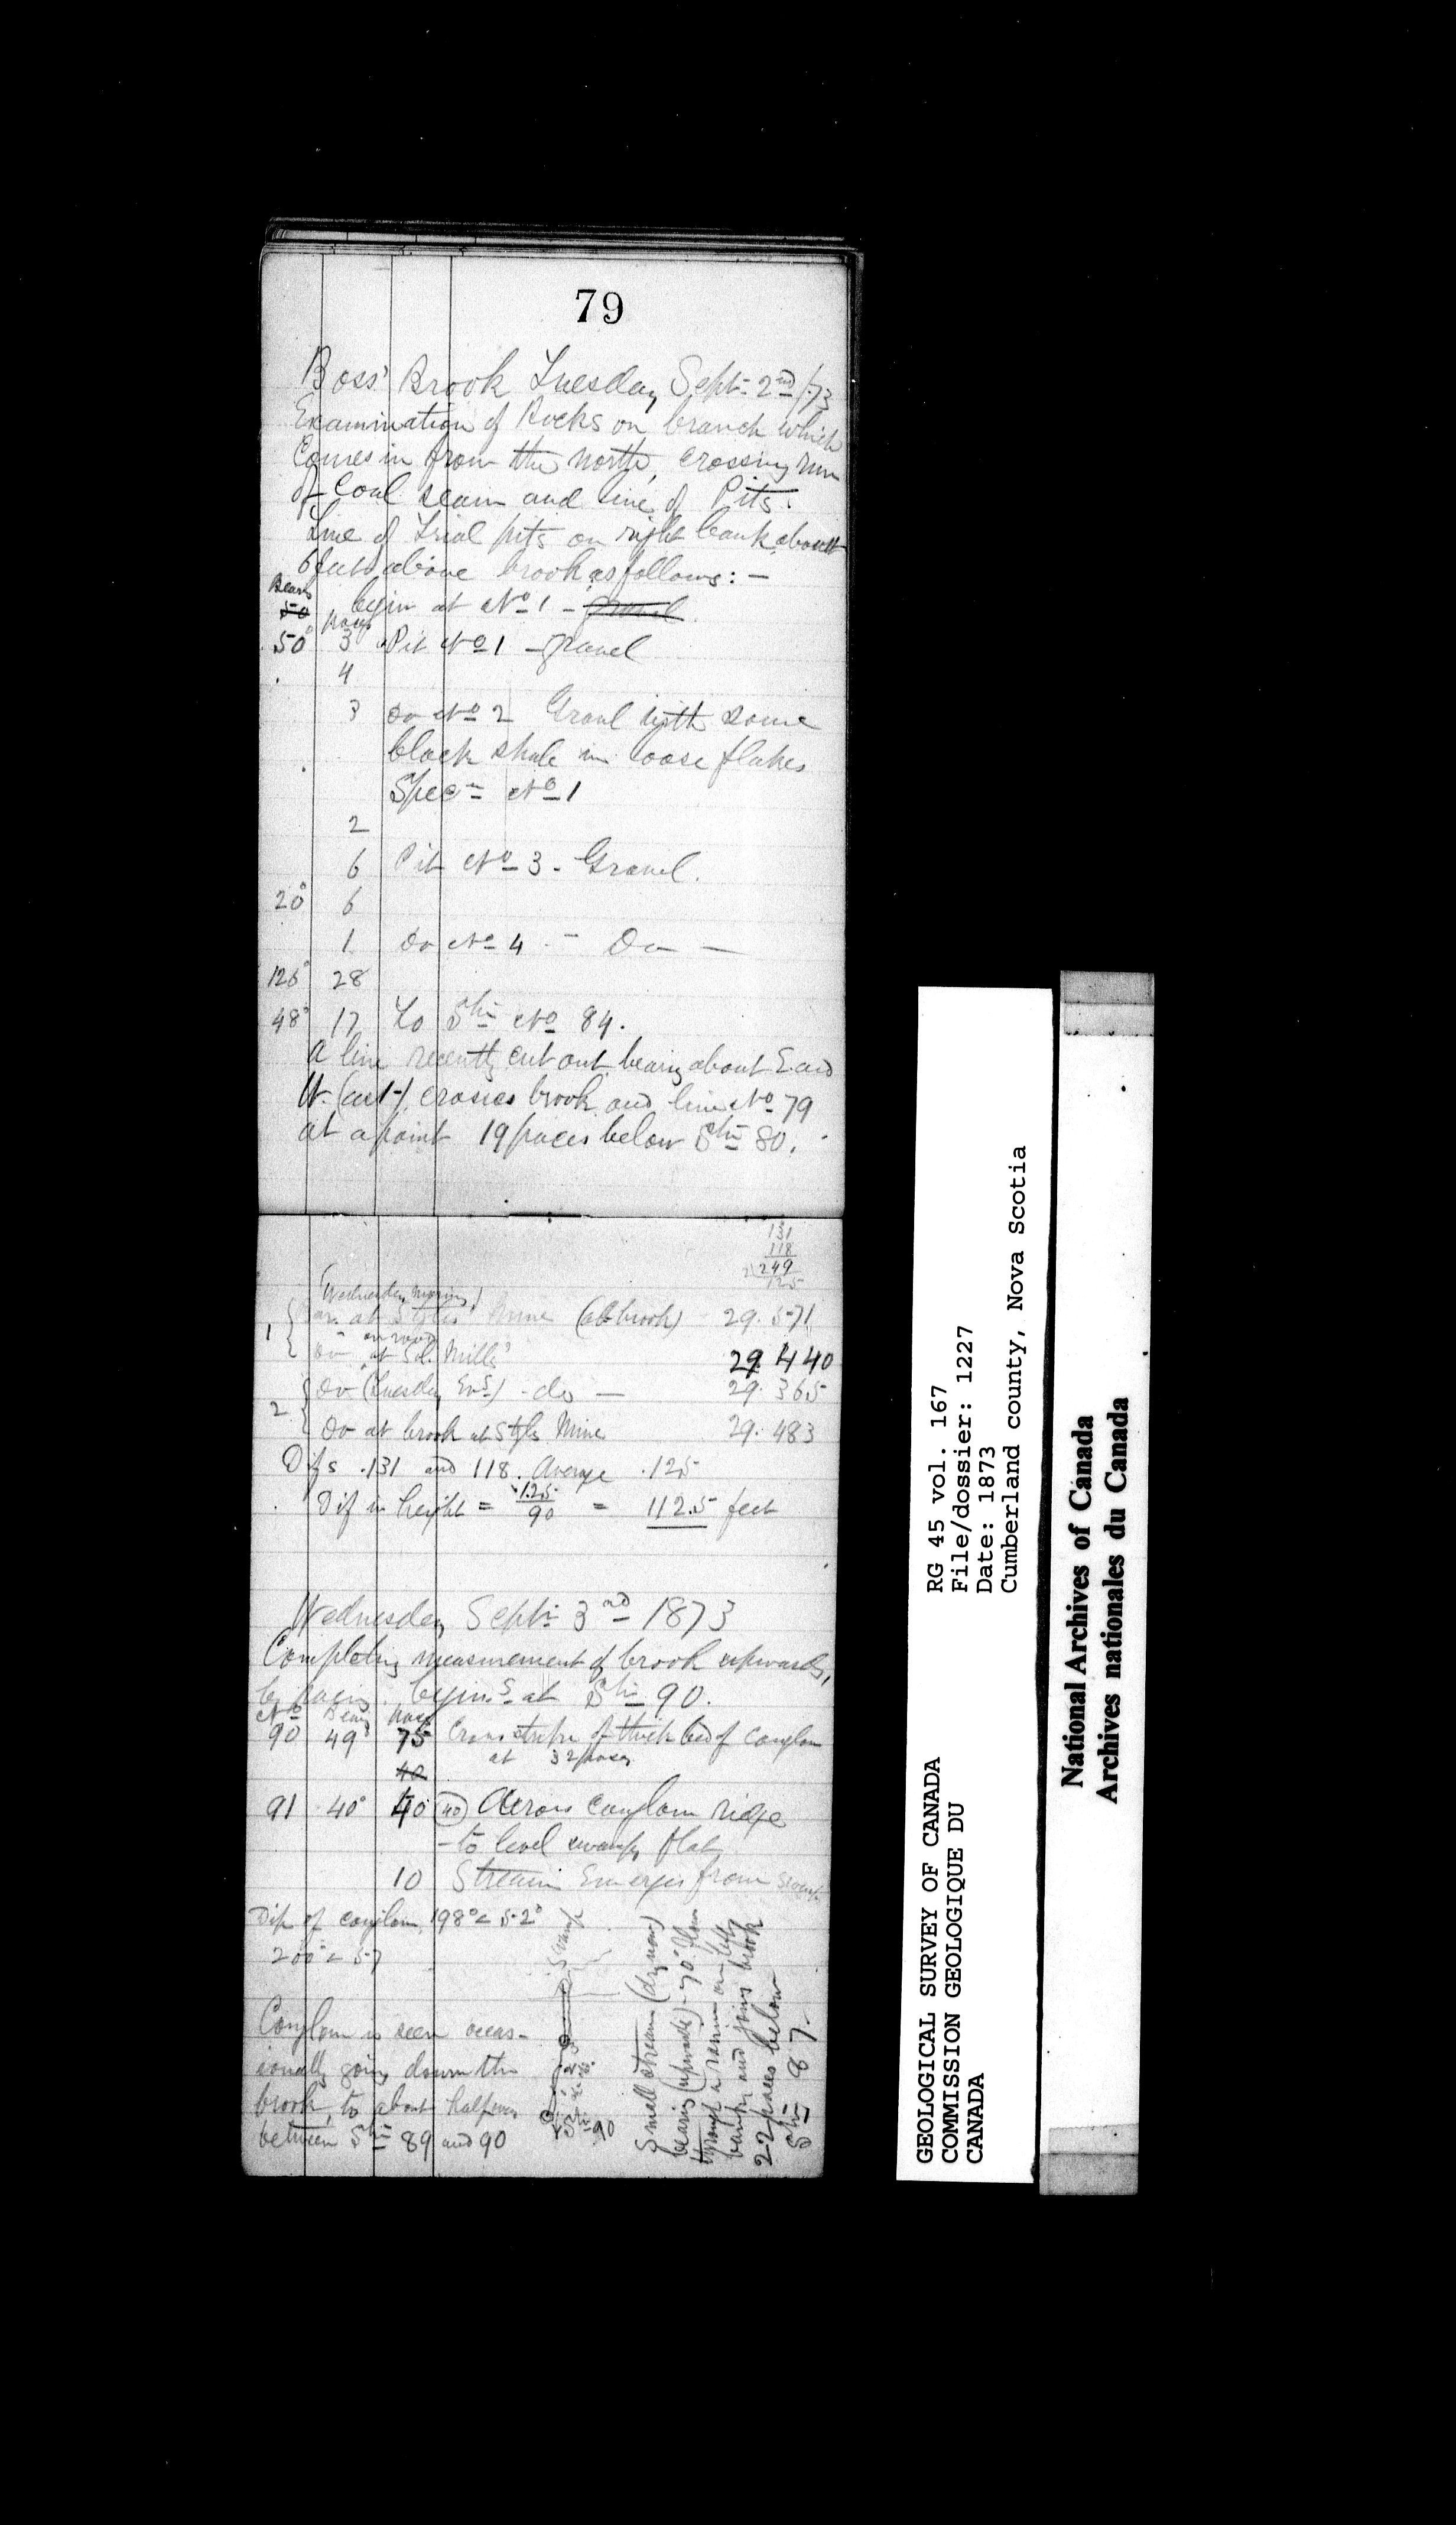 79
Boss' Brook Tuesday Sept. 2nd /73
Examination of Rocks on branch which
comes in from the north, crossing run
of Coal seam and line of Pits.
Line of Trial pits on right bank about
6 feet above brook as follows: —
Bears
50 begin at No 1 - gravel
paces
50° 3 Pit No 1 - gravel
4
3 do No 2 Gravel with some
black shale in loose flakes
Specn No 1
2
6 Pit No 3 - Gravel.
20° 6
1 do No 4 - Do —
126° 28
48° 17 to Stn No 84.
A line recently cut out bearing about E and
W. (ast) crosses brook and line No 79
at a point 19 paces below Stn 80.
131
118
2 249
125
(Wednesday morning)
1 Bar. at Styles Mine (at brook) - 29.571
on road
do at Sol. Mills' 29.440
2 do (Tuesday Evg) - do — 29.365
do at brook at Styles Mine 29.483
Difs .131 and 118. Average .125
Dif in height = .125/90 = 112.5 feet
Wednesday Sept. 3rd 1873
Completing measurement of brook upwards,
by pacing. begins at Stn 90.
No Bearg paces
90 49° 75 Cross strike of thick bed of conglom
at 32 paces
40
91 40° 40 (40) Across conglom ridge
- to level swampy flat
10 Stream Emerges from swamp
Dip of conglom 198° < 52°
200° < 57
Conglom is seen occas-
ionally going down the
brook, to about halfway
between Stns 89 and 90
Swamp
Stn 90
Small stream (dry now)
bearing (upwards) - 70° flows
through a ravine on left
bank and joins brook
22 paces below
Stn 87.
RG 45 vol. 167
File/dossier: 1227
Date: 1873
Cumberland county, Nova Scotia
GEOLOGICAL SURVEY OF CANADA
COMMISSION GEOLOGIQUE DU
CANADA
National Archives of Canada
Archives nationales du Canada